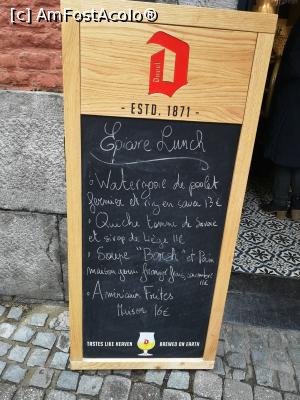 [c] AmFostAcolo®
Duvel
- ESTD. 1871 -
Epicure Lunch
Waterzooi de poulet
fermier et riz en sauce 13€
Quiche tomme de Savoie
et sirop de Liège 11€
Soupe "Borsch" et Pain
maison
11€
Américain Frites
Maison 16€
TASTES LIKE HEAVEN
BREWED ON EARTH